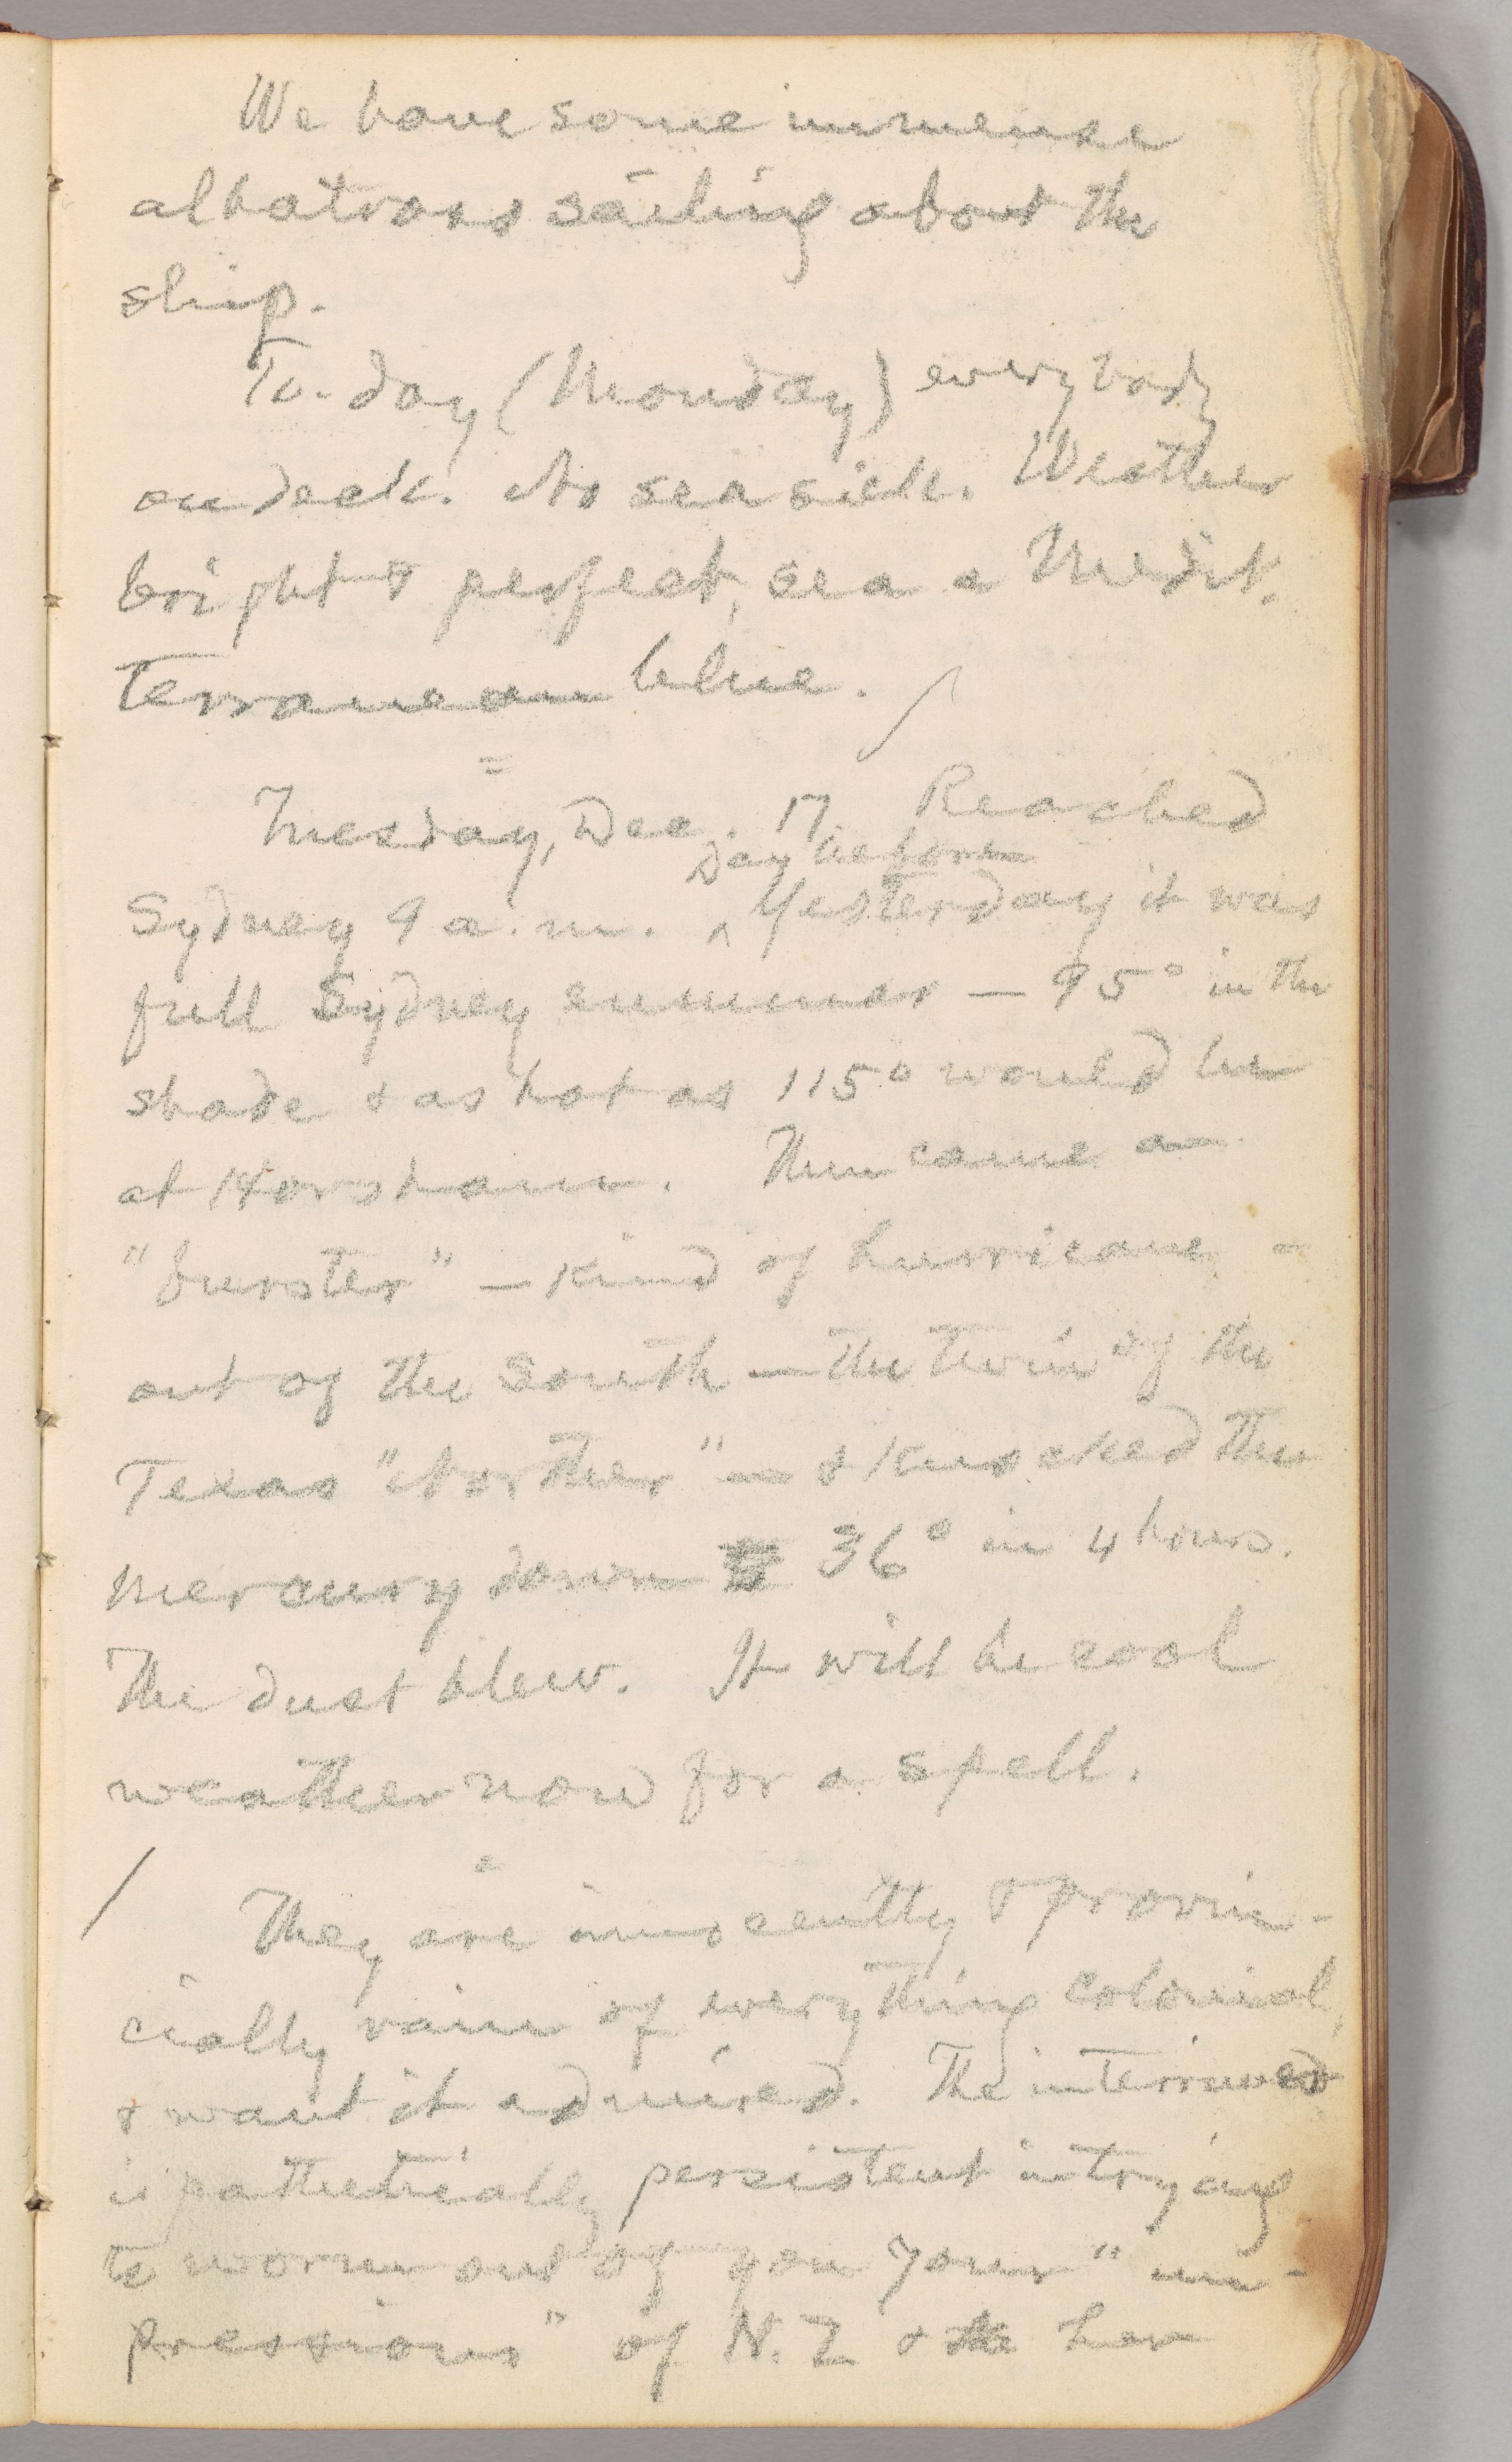 We have some immense
albatross sailing about the
ship.
To-day (Monday) everybody
on deck. No seasick. Weather
bright & perfect, sea a Medit-
terranean blue.
=
Tuesday, Dec. 17. Reached
day before
Sydney 9 a.m. ^ Yesterday it was
full Sydney summer — 95° in the
shade & as hot as 115° would be
at Horsham. Then came a
"burster" — kind of hurricane —
out of the South — the twin of the
Texas "Norther" — & knocked the
mercury down 36° in 4 hours.
The dust blew. It will be cool
weather now for a spell.
=
/ They are innocently & provin-
cially vain of everything colonial,
& want it admired. The interviewer
is pathetically persistent in trying
to worm out of you your "im-
pressions" of N. Z & her